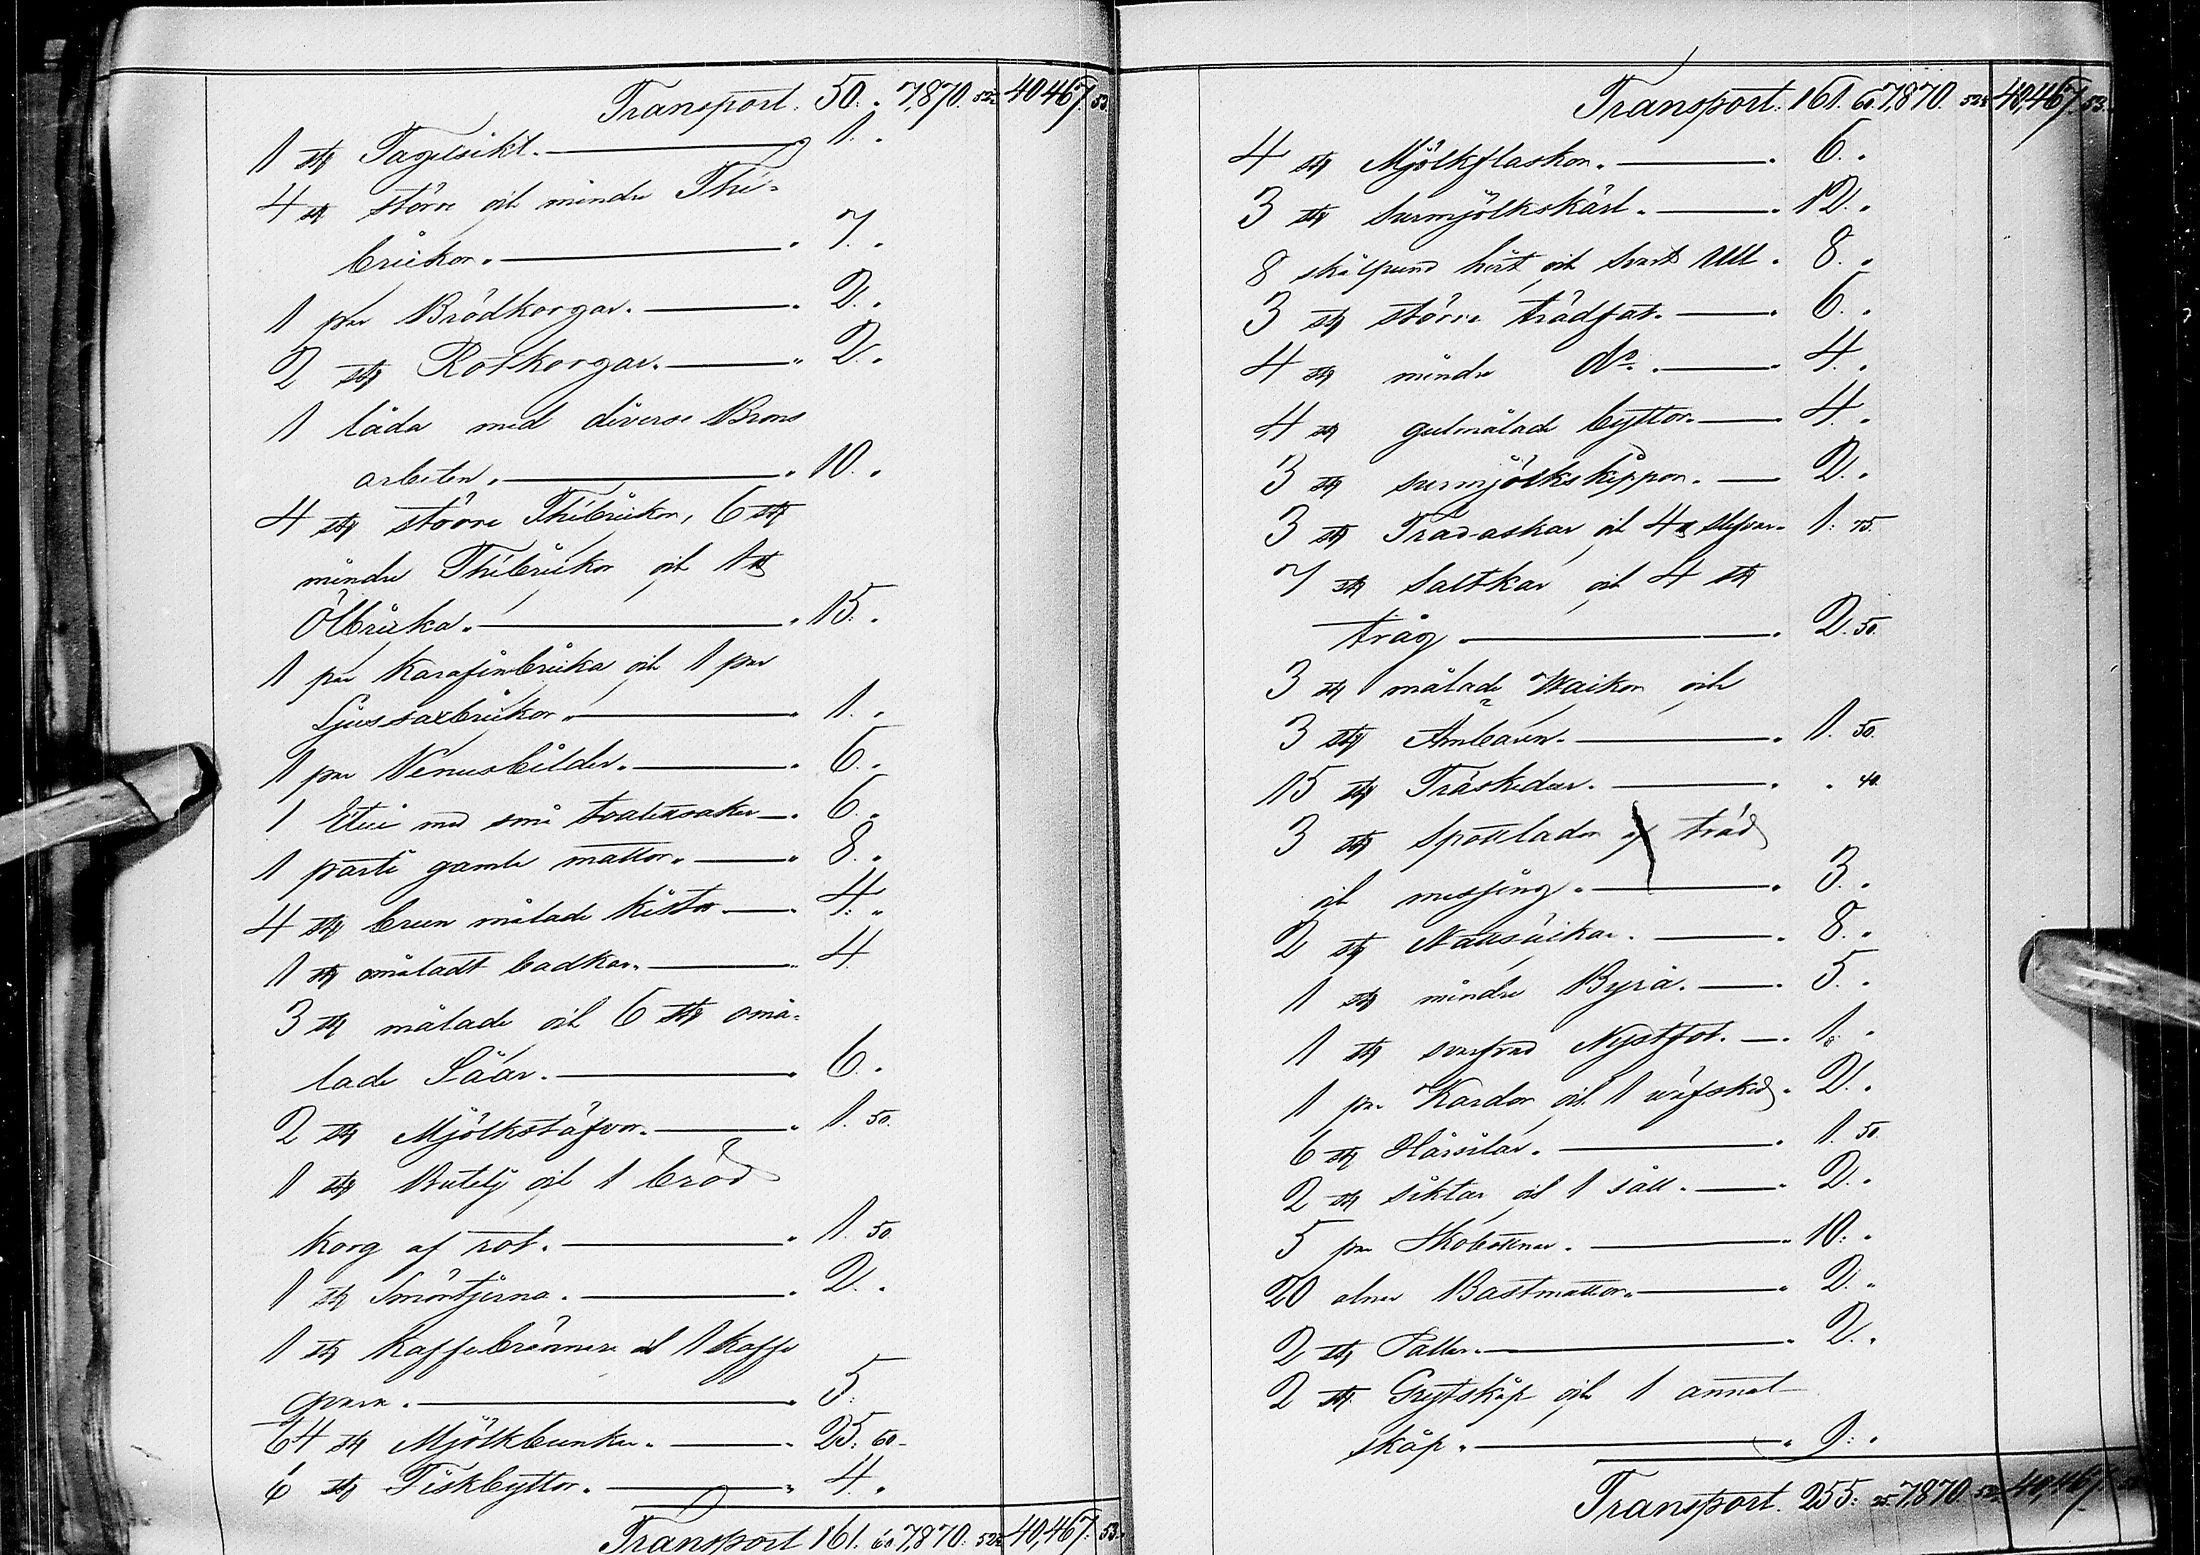 Transport. 50. „ 7,870. 52½ 40,467. 53.
1 st Tagelsikt. 1. „
4 st större och mindre Thé-
brickor. 7. „
1 par Brödkorgar. 2. „
2 st Rotkorgar. 2. „
1 låda med diverse Brons
arbeten. 10. „
4 st större Thébrickor, 6 st
mindre Thébrickor och 1 st
Ölbricka. 15. „
1 par Karafinbricka och 1 par
Ljussaxbrickor. 1. „
1 par Venusbilder. 6. „
1 Etui med små toalettsaker 6. „
1 parti gamla mattor. 8. „
4 st brun målade kistor 4. „
1 st omåladt badkar. 4
3 st målade och 6 st omå-
lade Såar. 6. „
2 st Mjölkstäfvor. 1. 50.
1 st Butelj och 1 bröd
korg af rot. 1. 50
1 st Smörtjerna. 2. „
1 st Kaffebrännare och 1 Kaffe
qvarn. 5.
64 st Mjölkbunkar. 25. 60
6 st Fiskbyttor. 4. „
Transport 161. 60 7,870. 52½ 40,467. 53.
Transport. 161. 60 7,870. 52½ 40,467. 53.
4 st Mjölkflaskor. 6. „
3 st Surmjölkskärl. 12. „
8 skålpund hvit och svart Ull 8. „
3 st större trädfat. 6. „
4 st mindre do. 4. „
4 st gulmålade byttor. 4. „
3 st surmjölkskippor. 2. „
3 st Träd-askar och 4 st slefvar 1. 75.
7 st Saltkar och 4 st
tråg 2. 50.
3 st målade och
3 st Ämbaren. 1. 50.
15 st Träskedar. „ 40.
3 st Spottlådor af träd
och messing. 3. „
2 st Nattsäckar. 8. „
1 st mindre Byrå. 5. „
1 st svarfvad Nystfot. 1. „
1 par Kardor och 1 väfsked 2. „
6 st Hårsilar. 1. 50.
2 st siktar och 1 såll. 2. „
5 par Skobottnar. 10. „
20 alnar Bastmattor. 2. „
2 st Pallar. 2. „
2 st Grytskåp och 1 annat
skåp. 9. „
Transport. 255. 25. 7,870. 52½ 40,467.